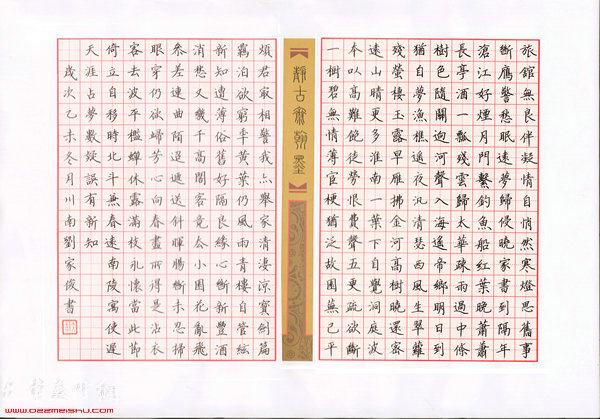 旅館無良伴凝情自悄然寒燈思舊事
斷鴈警愁眠遠夢歸侵曉家書到隔年
滄江好煙月門繫釣魚船紅葉晚蕭蕭
長亭酒一瓢殘雲歸太華疎雨過中條
樹色隨關迥河聲入海遙帝鄉明日到
猶自夢漁樵遥夜汎清瑟西風生翠蘿
殘螢棲玉露早雁拂金河高樹曉還密
遠山晴更多淮南一葉下自覺洞庭波
本以高難飽徒勞恨費聲五更疏欲斷
一樹碧無情薄宦梗猶泛故園蕪已平
靜古齋翰墨
煩君最相警我亦舉家清淒涼寶劍篇
羈泊欲窮年黃葉仍風雨青樓自管絃
新知遭薄俗舊好隔良緣心斷新豐酒
消愁又幾千高閣客竟去小園花亂飛
參差連曲陌迢遞送斜暉腸斷未忍掃
眼穿仍欲歸芳心向春盡所得是沾衣
客去波平檻蟬休露滿枝永懷當此節
倚立自移時北斗兼春遠南陵寓使遲
天涯占夢數疑誤有新知
歲次乙未冬月川南劉家俊書